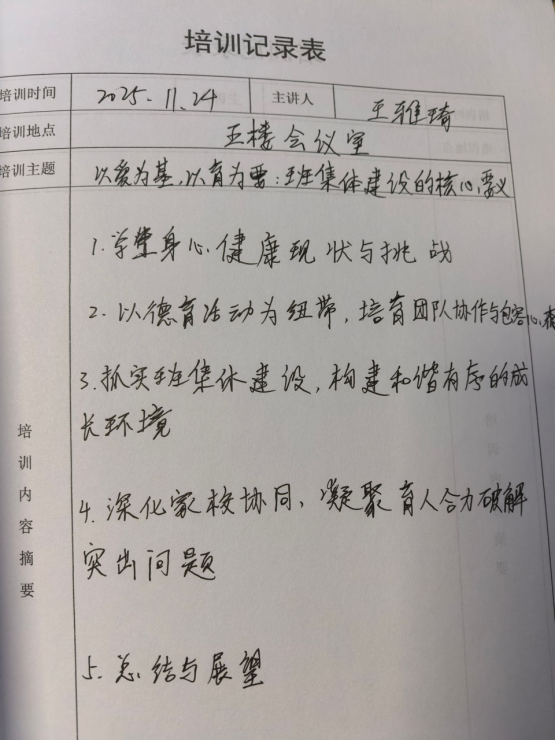 培训记录表
培训时间 2025.11.24 主讲人 王雅琦
培训地点 五楼会议室
培训主题 以爱为基,以育为要:班集体建设的核心要义
1.学生身心健康现状与挑战
2.以德育活动为纽带,培育团队协作与包容心
3.抓实班集体建设,构建和谐有序的成
长环境
培训内容摘要
4.深化家校协同,凝聚育人合力破解
突出问题
5.总结与展望